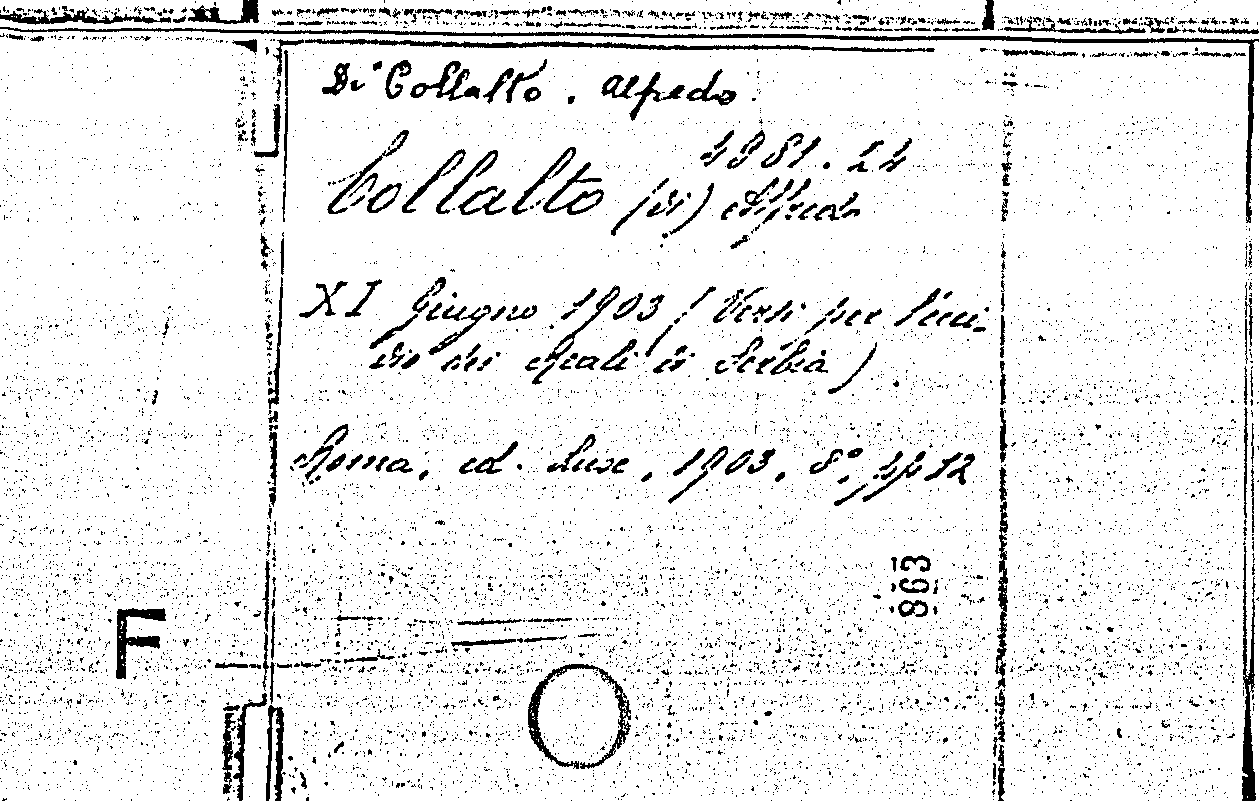 Di Collalto. Alfredo
4981.24
Collalto (di) Alfredo
XI Giugno 1903 (Versi per l'ecci-
dio dei Reali di Serbia)
Roma, ed. Luxe, 1903. 8°, pp 12
863
F